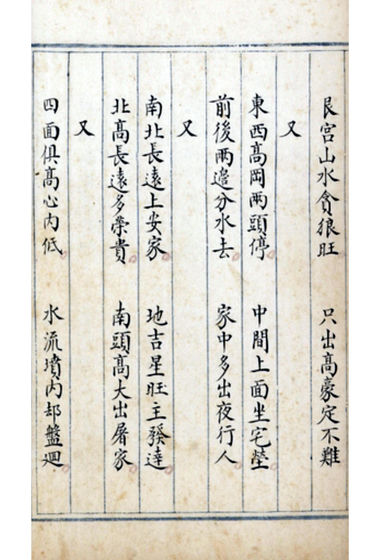 艮宮山水貪狼旺　只出高豪定不難
又
東西高岡兩頭停　中間上面坐宅塋
前後兩邊分水去　家中多出夜行人
又
南北長遠上安家　地吉星旺主發達
北髙長遠多榮貴　南頭髙大出屠家
又
四面俱髙心內低　水流墳內却盤迴